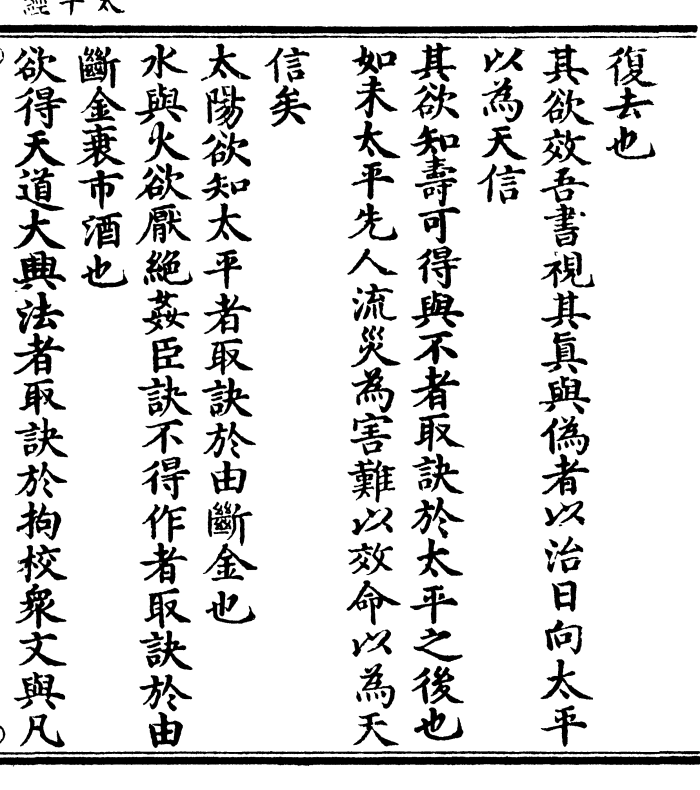 復去也
其欲效吾書視其眞與偽者以治日向太平
以為天信
其欲知壽可得與不者取訣於太平之後也
如未太平先人流災為害難以效命以為天
信矣
太陽欲知太平者取訣於由斷金也
水與火欲厭絕姦臣訣不得作者取訣於由
斷金衰市酒也
欲得天道大興法者取訣於拘校眾文與凡